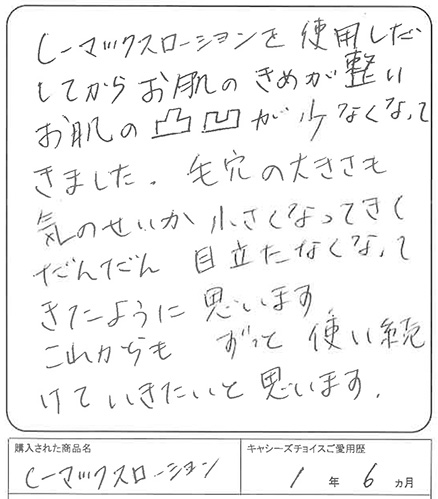 Cーマックスローションを使用しだ
してからお肌のきめが整い
お肌の凸凹が少なくなって
きました。毛穴の大きさも
気のせいか小さくなってきて
だんだん目立たなくなって
きたように思います
これからもずっと使い続
けていきたいと思います。
購入された商品名
Cーマックスローション
キャシーズチョイスご愛用歴
1年6ヵ月